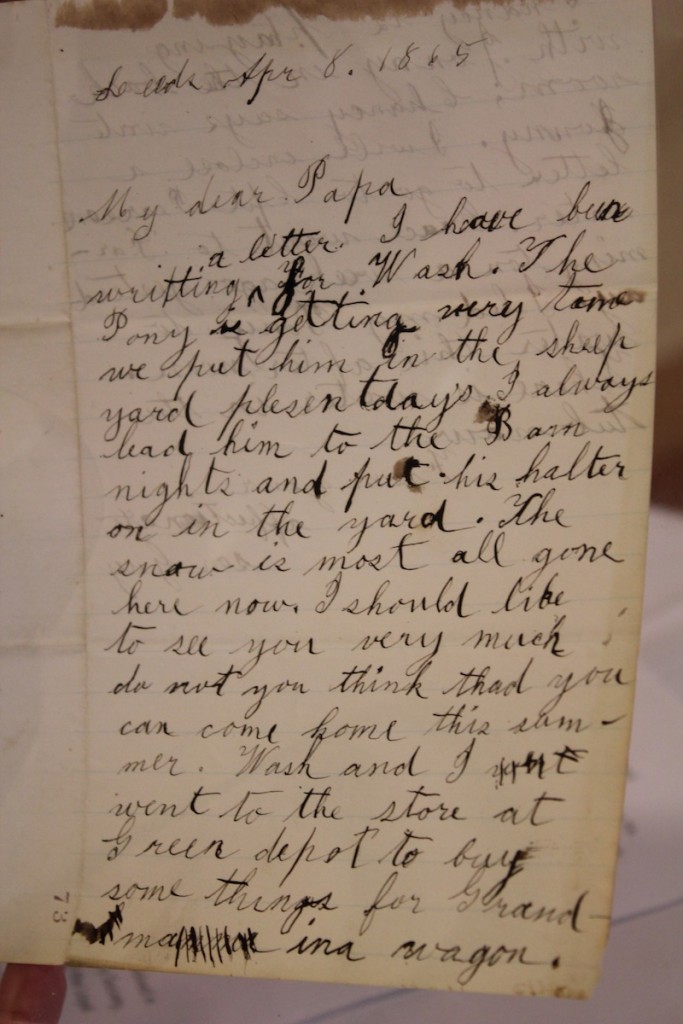 Leeds Apr 8. 1865
My dear Papa
a letter. I have been
writting ^ for Wash. The
Pony is getting very tame
we put him in the sheep
yard plesent days. I always
lead him to the Barn
nights and put his halter
on in the yard. The
snow is most all gone
here now. I should like
to see you very much
do not you think thad you
can come home this sum-
mer. Wash and I
went to the store at
Green depot to buy
some things for Grand-
ma in a wagon.
73